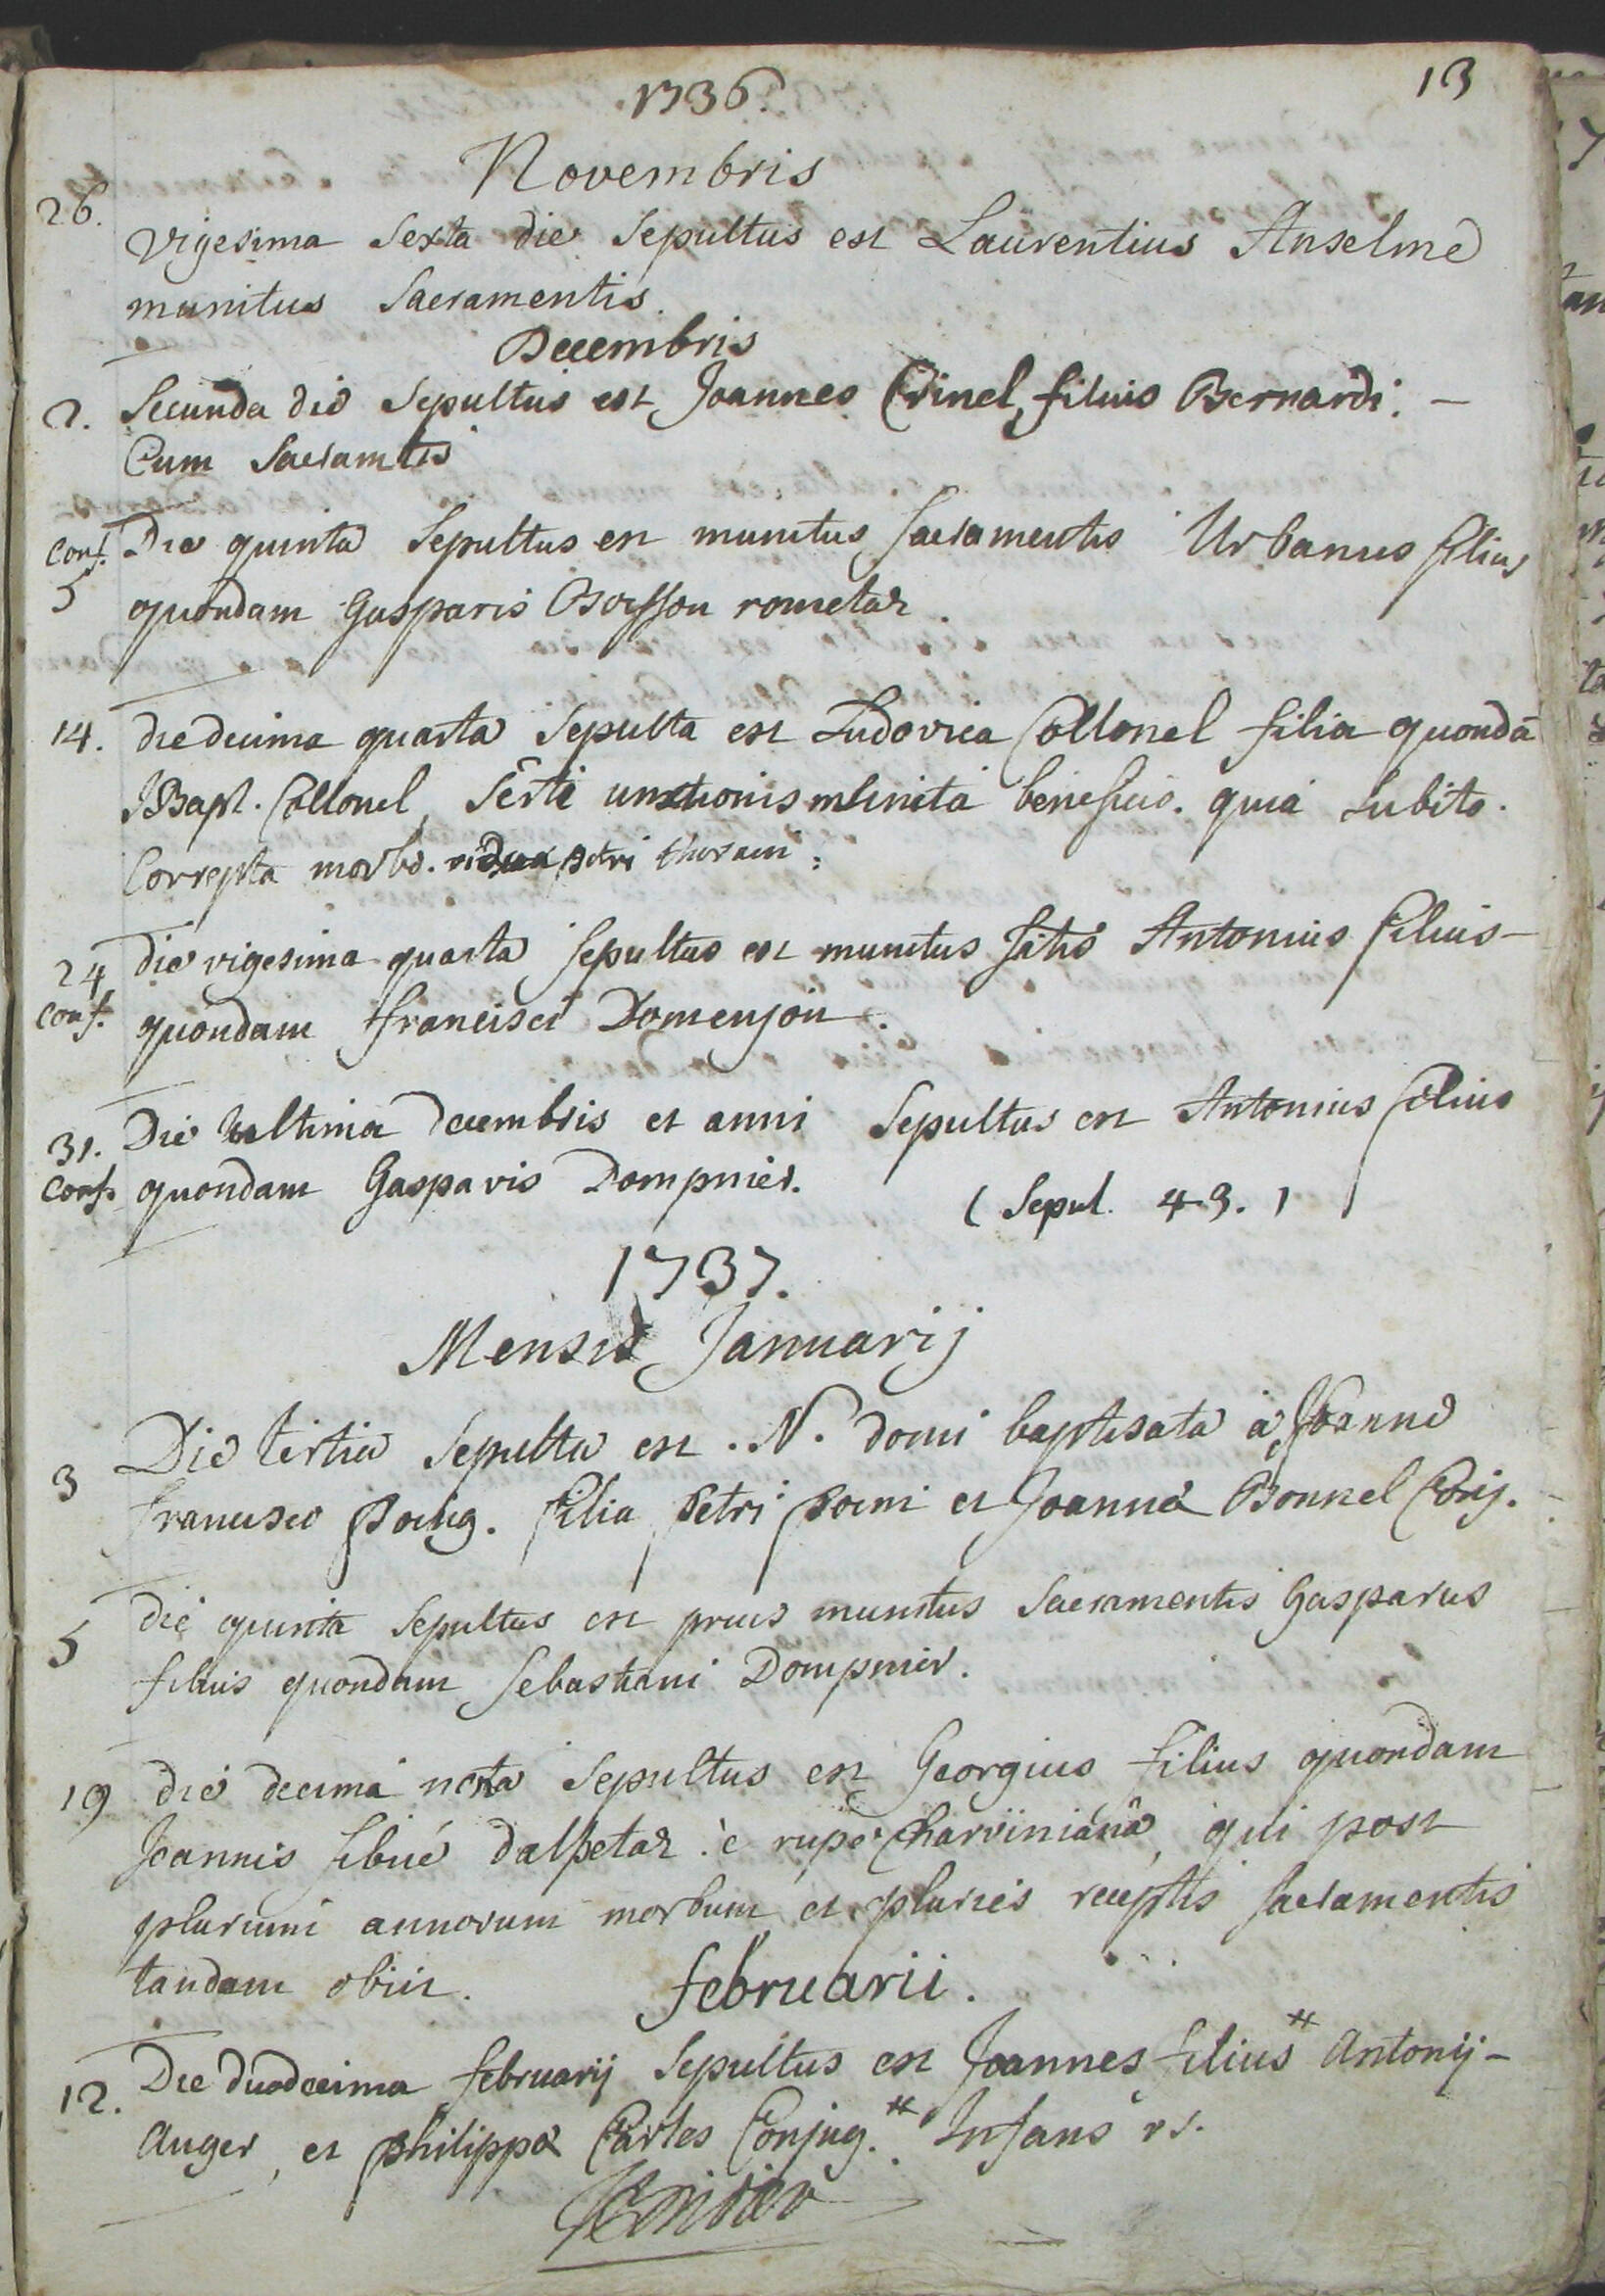 13
1736.
Novembris
26. Vigesima Sexta die Sepultus est Laurentius Anselme
munitus Sacramentis.
Decembris
2. Secunda die Sepultus est Joannes Crinel, filius Bernardi. —
Cum Sacramtis
Conf. Die quinta Sepultus est munitus Sacramentis Urbanus filius
5 quondam Gasparis Boisson rometaz.
14. die decima quarta Sepulta est Ludovica Collonel filia quondā
JBapt. Collonel, unctionis munita beneficio. quia Subito.
Correpta morbo. vidua petri
24 die vigesima quarta Sepultus est munitus Sātis Antonius filius
Conf. quondam francisci Domenjon.
31. Die ultima decembris et anni Sepultus est Antonius filius
Conf. quondam Gasparis Dompnier.
( Sepul. 43. )
1737.
Mensis Januarij
Die tertia Sepulta est .N. domi baptisata à Joanne
3 francisco filia Petri et Joannæ Bonnel Conj.
5 die quinta Sepultus est prius munitus Sacramentis Gasparus
filius quondam Sebastiani Dompnier.
19 die decima nona Sepultus est Georgius filius quondam
Joannis dalpetaz è rupe Charviniana, qui post
plurium annorum morbum et pluries receptis Sacramentis
tandem obiit.
februarii.
12. Die duodecima februarij Sepultus est Joannes filius # Antonij
Auger, et philippæ Cartes Conjug. # Infans